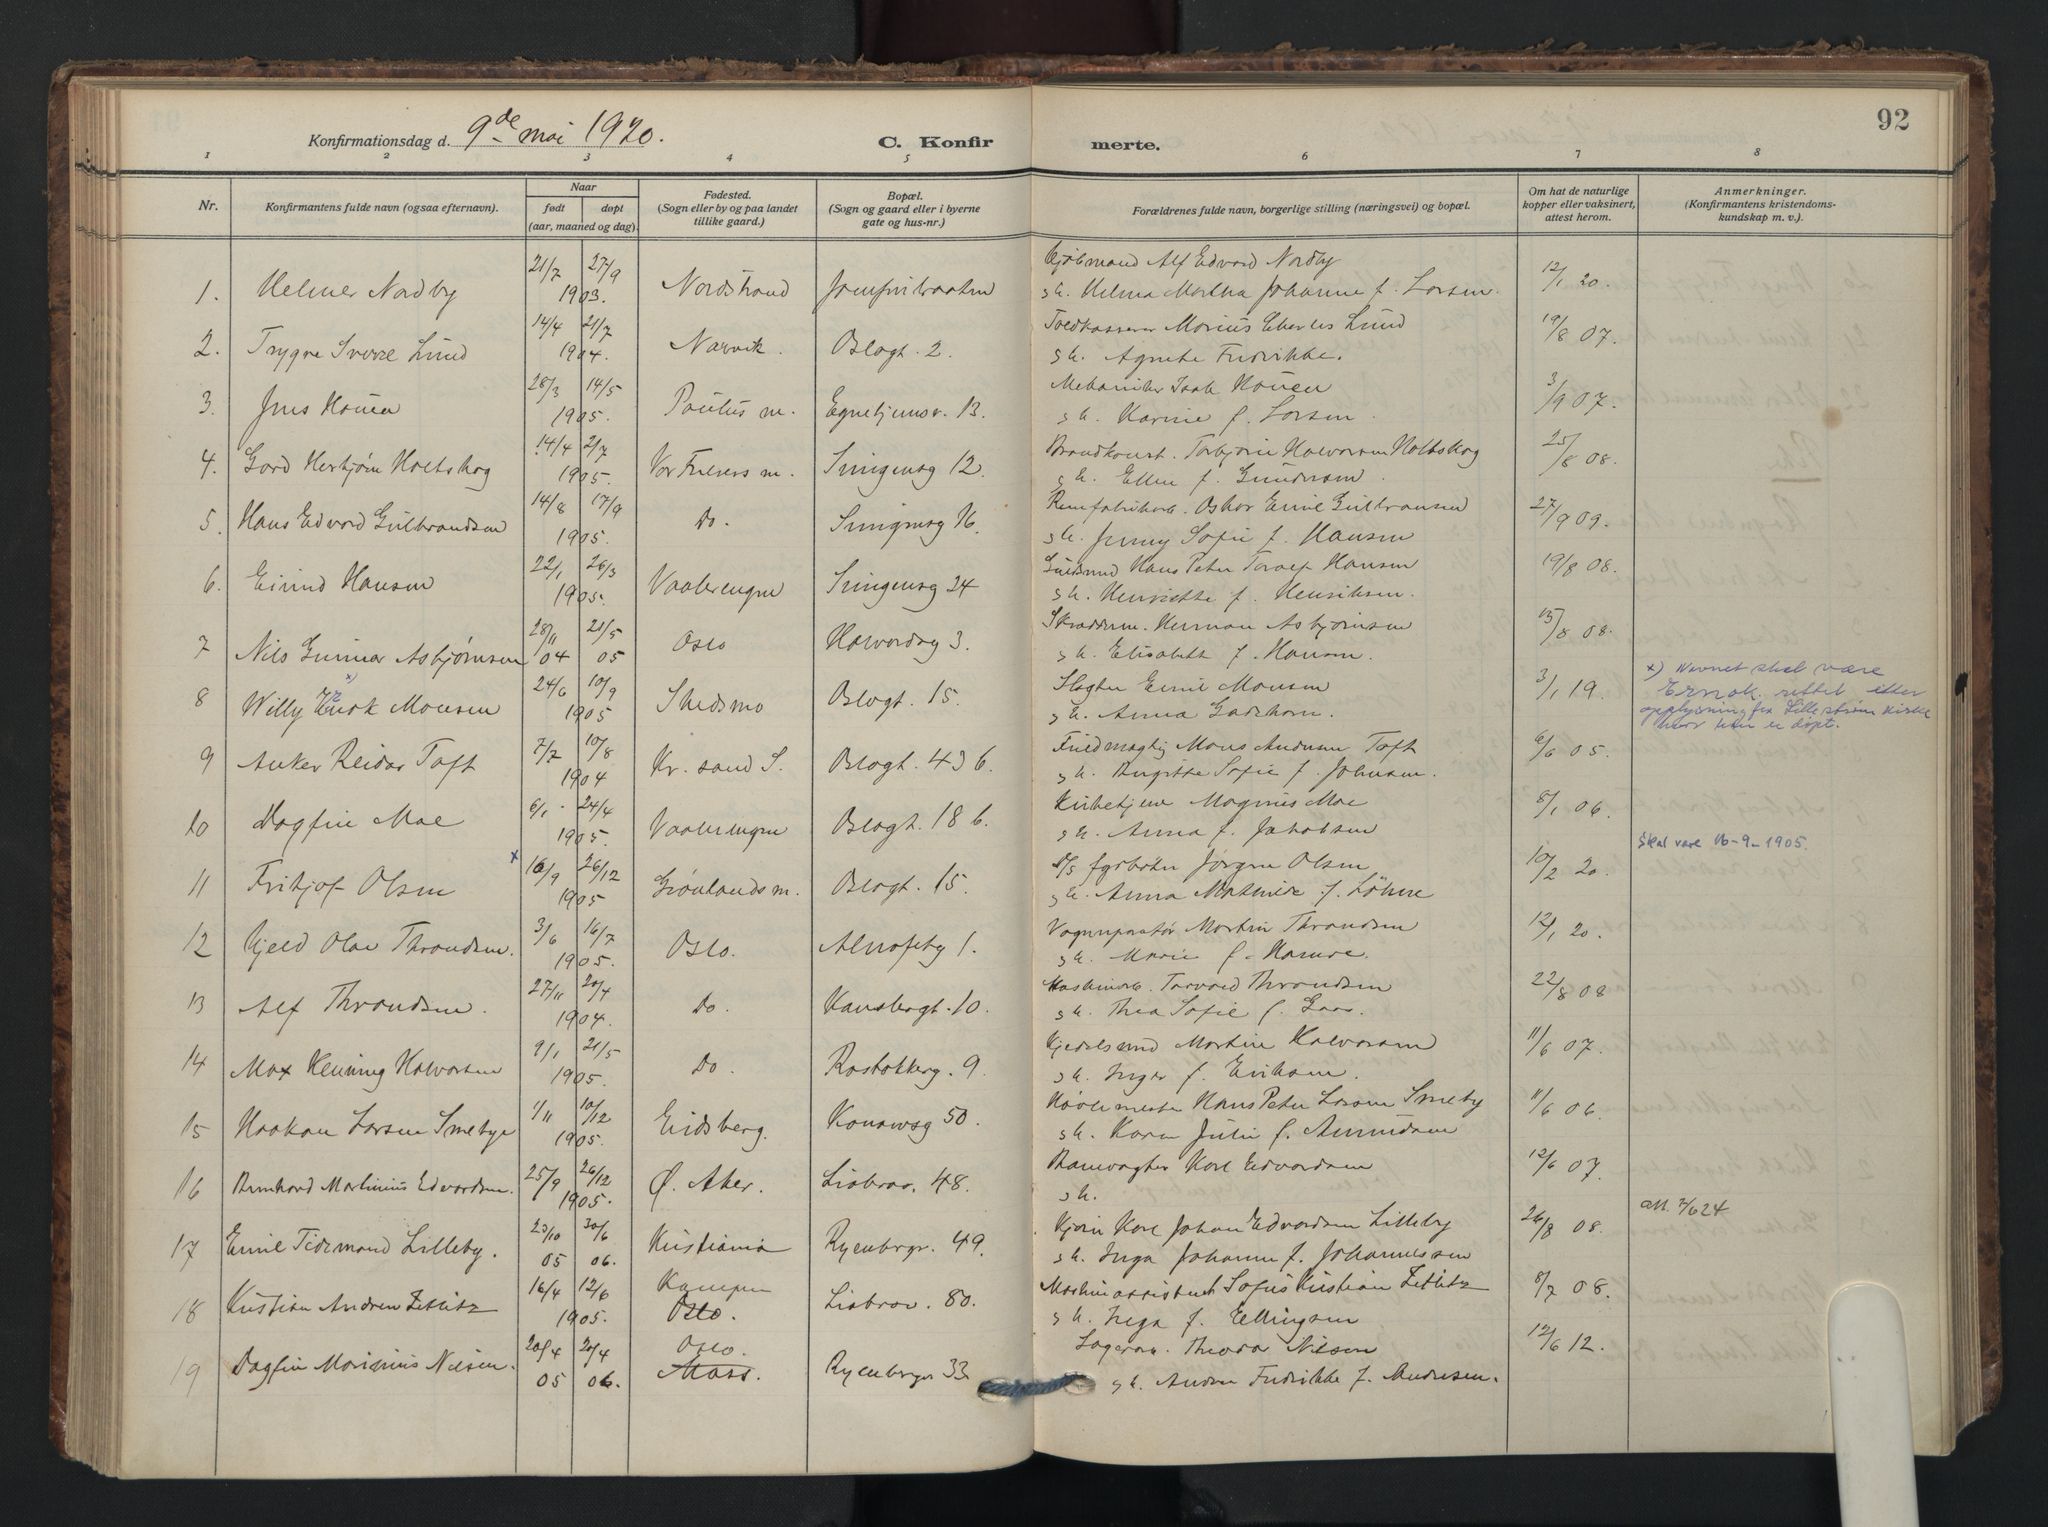 92
Konfirmationsdag d. 9de mai 1920.
C. Konfirmerte.
1 2 3 4 5 6 7 8
Nr.
Konfirmantens fulde navn (ogsaa efternavn).
Naar
født døpt
(aar, maaned og dag).
Fødested.
(Sogn eller by og paa landet
tillike gaard.)
Bopæl.
(Sogn og gaard eller i byerne
gate og hus-nr.)
Forældrenes fulde navn, borgerlige stilling (næringsvei) og bopæl.
Om hat de naturlige
kopper eller vaksinert,
attest herom.
Anmerkninger.
(Konfirmantens kristendoms-
kundskap m. v.).
1. Helmer Nordby 21/7 27/9 1903. Nordstrand Jomfrubraaten
Kjøbmand Alf Edvard Nordby
g h. Helma Martha Johanne f. Larsen. 12/1 20.
2. Trygve Sverre Lund 14/4 21/7 1904. Narvik. Oslogt. 2.
Toldkasserer Marius Charles Lund
g h. Agnete Fredrikke. 19/8 07.
3. Jens Houen 28/3 14/5 1905. Paulus m. Egnehjemsv. 13.
Mekaniker Isak Houen
g h. Karine f. Larsen. 3/9 07.
4. Gard Herbjørn Holtskog 14/4 2/7 1905. Vor Frelsers m. Svingensg 12.
Brandkonst. Torbjørn Halvorsen Holtskog
g h. Ellen f. Gundersen. 25/8 08.
5. Hans Edvard Gulbrandsen 14/8 17/9 1905. Do. Svingensg 16.
Oskar Emil Gulbransen
g h. Jenny Sofie f. Hansen 27/9 09.
6. Eivind Hansen 22/1 26/3 1905. Vaalerengen Svingensg 24
Guldsmed Hans Peter Toralf Hansen
g h. Henriette f. Henriksen. 19/8 08.
7 Nils Gunnar Asbjørnsen 28/11 04 21/5 05 Oslo Halvardsg 3.
Skræddern. Herman Asbjørnsen
g h. Elisabeth f. Hansen. 13/8 08.
8 Willy x) Monsen 24/6 10/9 1905 Skedsmo Oslogt. 15.
Slagter Emil Monsen
g h. Anna Gadehorn. 3/1 19.
x) Navnet skal være
Ernok. rettet etter
opplysning fra Lillestrøm kirke
hvor han er døpt.
9 Anker Reidar Toft 7/7 10/8 1904 Kr. sand S. Oslogt. 43 b.
Fuldmægtig Mons Andersen Toft
g h. Birgitte Sofie f. Johnsen. 6/6 05.
10 Dagfin Moe 6/1 24/4 1905. Vaalerengen Oslogt. 18 b.
Kirketjener Magnus Moe
g h. Anna f. Jakobsen 8/1 06.
11 Frithjof Olsen x 16/9 26/12 1905 Grønlands m. Oslogt. 15.
D/S fyrbøter Jørgen Olsen
g h. Anna Mathilde f. Löhne 10/2 20.
Skal være 16-9-1905.
12 Kjeld Olav Throndsen. 3/6 16/7 1905. Oslo. Alnafetby 1.
Vognreparatør Martin Throndsen
g h. Marie f. Hamre. 12/1 20.
13 Alf Throndsen. 27/11 20/4 1904. Do. Kanslergt. 10.
Maskinarb. Torvald Throndsen
g h. Thea Sofie f. Gaas. 22/8 08
14 Max Henning Halvorsen 9/1 21/5 1905. Do. Rostockerg. 9.
Kjedelsmed Martin Halvorsen
g h. Inger f. Eriksen. 11/6 07.
15 Haakon Larsen Smebye 1/11 10/12 1905. Eidsberg. Konowsg 50.
Høvlemester Hans Peter Larsen Smeby
g h. Karen Julie f. Amundsen 11/6 06.
16 Bernhard Martinius Edvardsen. 25/9 26/12 1905. Ø. Aker. Liabrov. 48.
Banevogter Karl Edvardsen
g h. 12/6 07.
17 Emil Tidemand Lilleby. 23/10 05 30/6 06. Kristiania Ryenbergv. 49.
Karl Johan Edvardsen Lilleby
g h. Inga Johanne f. Johannessen 26/8 08.
att. 2/6 24
18 Kristian Andreas Zetlitz 16/4 12/6 1905. Kampen Oslo. Liabrov. 80.
Maskinassistent Sofus Kristian Zetlitz
g h. Inga f. Ellingsen 8/7 08.
19 Dagfin Marinius Nilsen. 20/4 05 20/4 06. Oslo. Moss. Ryenbergv 33
Lagerarb. Theodor Nilsen
g h. Andrea Fredrikke f. Andresen. 12/6 12.